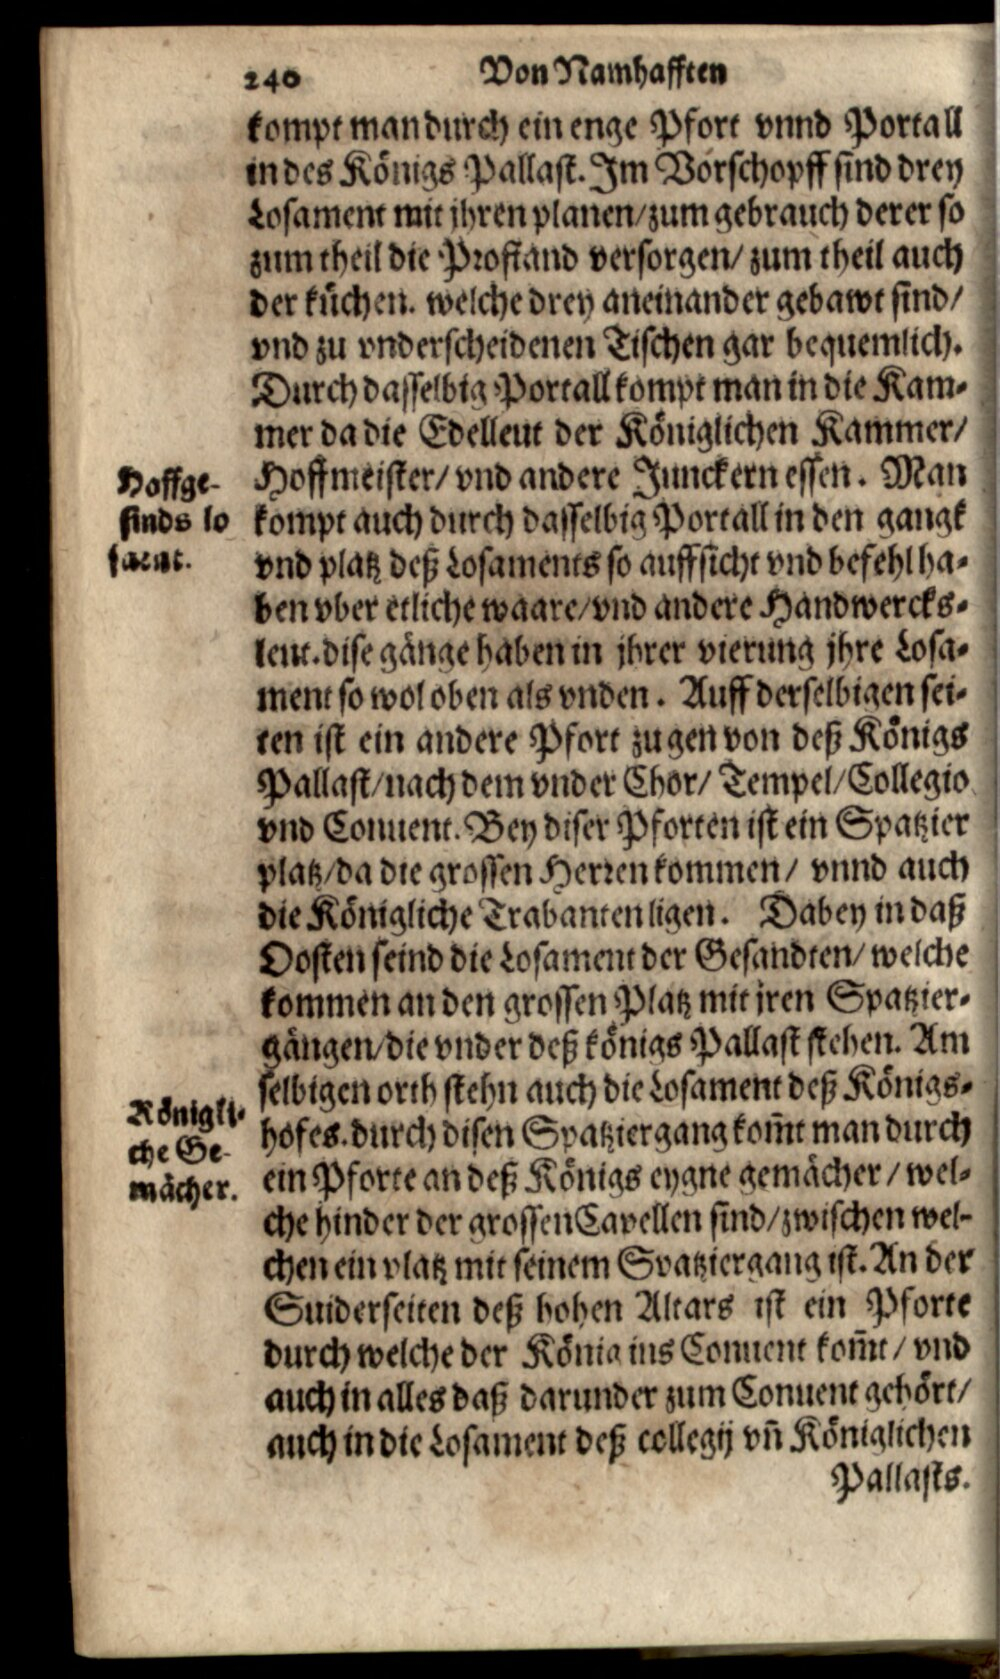 240 Von Namhafften
kompt man durch ein enge Pfort vnnd Portall
in des Königs Pallast. Im Vorschopff sind drey
Losament mit jhren planen/zum gebrauch derer so
zum theil die Profiand versorgen/ zum theil auch
der küchen. welche drey aneinander gebawt sind/
vnd zu vnderscheidenen Tischen gar bequemlich.
Durch dasselbig Portall kompt man in die Kam-
mer da die Edelleut der Königlichen Kammer/
Hoffmeister/ vnd andere Junckern essen. Man
kompt auch durch dasselbig Portall in den gangk
vnd platz deß Losaments so auffsicht vnd befehl ha-
ben vber etliche waare/vnd andere Handwercks-
leut. dise gänge haben in jhrer vierung jhre Losa-
ment so wol oben als vnden. Auff derselbigen sei-
ten ist ein andere Pfort zugen von deß Königs
Pallast/nach dem vnder Chor/ Tempel/Collegio
vnd Conuent. Bey diser Pforten ist ein Spatzier
platz/da die grossen Herren kommen/ vnnd auch
die Königliche Trabanten ligen. Dabey in daß
Oosten seind die Losament der Gesandten/ welche
kommen an den grossen Platz mit jren Spatzier-
gängen/die vnder deß königs Pallast stehen. Am
selbigen orth stehn auch die Losament deß Königs-
hofes. durch disen Spatziergang kom̄t man durch
ein Pforte an deß Königs eygne gemächer / wel-
che hinder der grossen Capellen sind/zwischen wel-
chen ein platz mit seinem Spatziergang ist. An der
Suiderseiten deß hohen Altars ist ein Pforte
durch welche der König ins Conuent kom̄t/ vnd
auch in alles daß darunder zum Conuent gehört/
auch in die Losament deß collegij vn̄ Königlichen
Pallasts.
Hoffge-
sinds lo
sament.
Königli-
che Ge-
mächer.